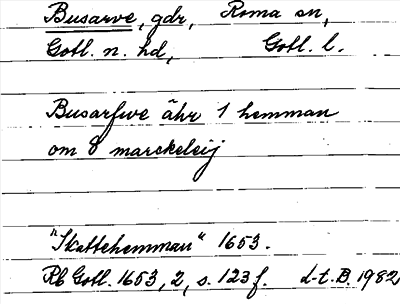 Busarve, gdr, Roma sn,
Gotl. n. hd, Gotl. l.
Busarfwe ähr 1 hemman
om 8 marckeleij
"Skattehemman" 1653.
Rb Gotl. 1653, 2, s. 123 f. L-t. B. 1982